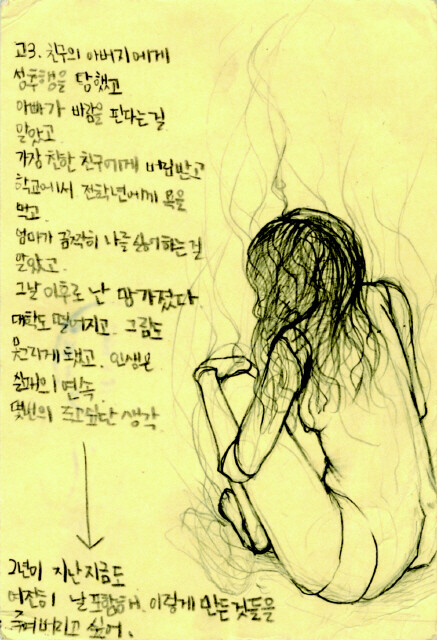 고3. 친구의 아버지에게
성추행을 당했고
아빠가 바람을 핀다는걸
알았고
가장 친한 친구에게 버림받고
학교에서 전학년에게 욕을
먹고.
엄마가 끔찍히 나를 싫어하는걸
알았고.
그날 이후로 난 망가졌다.
대학도 떨어지고. 그림도
못그리게 됐고. 인생은
실패의 연속.
몇번의 죽고싶단 생각
2년이 지난 지금도
여전히 날 포함해. 이렇게 만든 것들을
죽여버리고 싶어.